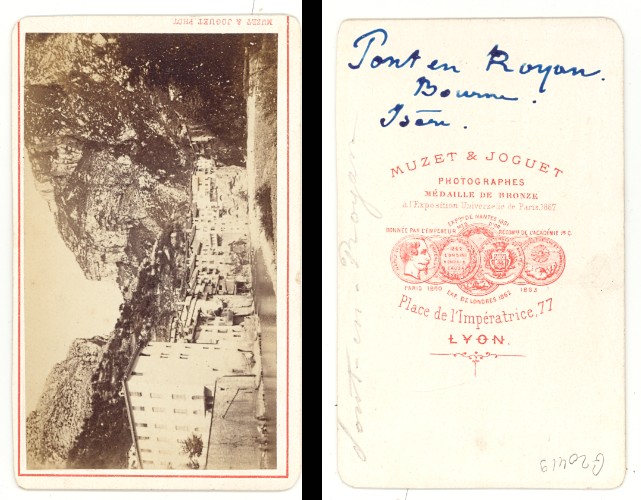 MUZET & JOGUET PHOT.
Pont en Royan.
Bourne.
Isère.
MUZET & JOGUET
PHOTOGRAPHES
MÉDAILLE DE BRONZE
A l'Exposition Universelle de Paris, 1867
EXPON DE NANTES 1861
DONNÉE PAR L'EMPEREUR
RÉCOMPSE DE L'ACADÉMIE Ile C.
PARIS 1860
EXP. DE LONDRES 1862
1863
Place de l'Impératrice, 77
LYON.
Pont-en-Royan
G20413